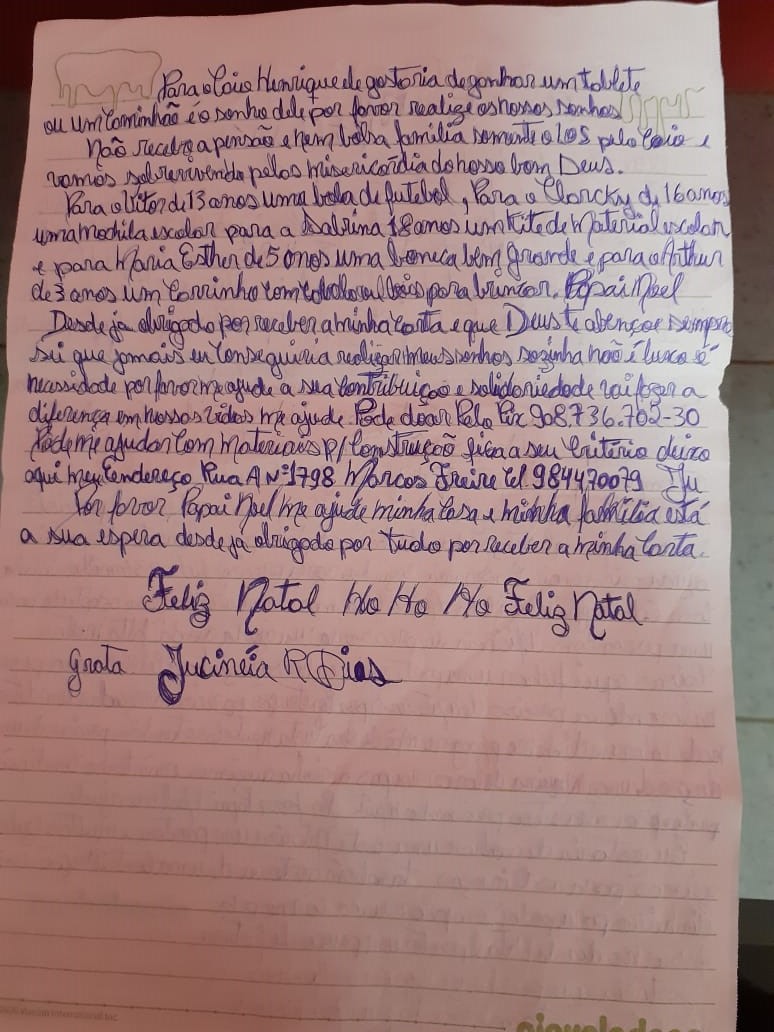 Para o Caio Henrique ele gostoria de gonhor um toblete
ou um Cominhão é o sonho dele por fovor realize os nossos sonhos
Não recebo a pensão e nem bolsa família somente o LOS pelo Caio e
vamos sobrevivendo pelos misericordia do nosso bom Deus.
Para o Vitor di 13 anos uma bola de futebol, Para o Clarcky di 16 anos
uma mochila escolar para a Sabrina 18 anos um Kite de Material escolar
e para Maria Esther de 5 onos uma boneca bem grande e para o Arthur
de 3 anos um Corrinho com para brincar. Papai Noel
Desde ja obrigado por receber a minha Corta e que Deus te abençoe sempre
sei que jamais eu Conseguiria realizar meus sonhos sozinha não é luxo é
necessidade por fovor me ajude a sua Contribuição e solidoriedade vai fozer a
diferença em nossos vidas me ajude. Pode doar Pelo Pix 908.736.702-30
Pode me ajudar Com materiais p/ Construção fica a seu Criterio deixo
aqui meu Endereço Rua A Nº 1798 Marcos Freire Cel. 984470079 Ju
Por fovor Papai Noel me ajude minha Casa e minha família está
a sua espera desde ja obrigado por tudo por receber a minha Corta.
Feliz Natal Ho Ho Ho Feliz Natal.
Grata Jucinéia R Dias